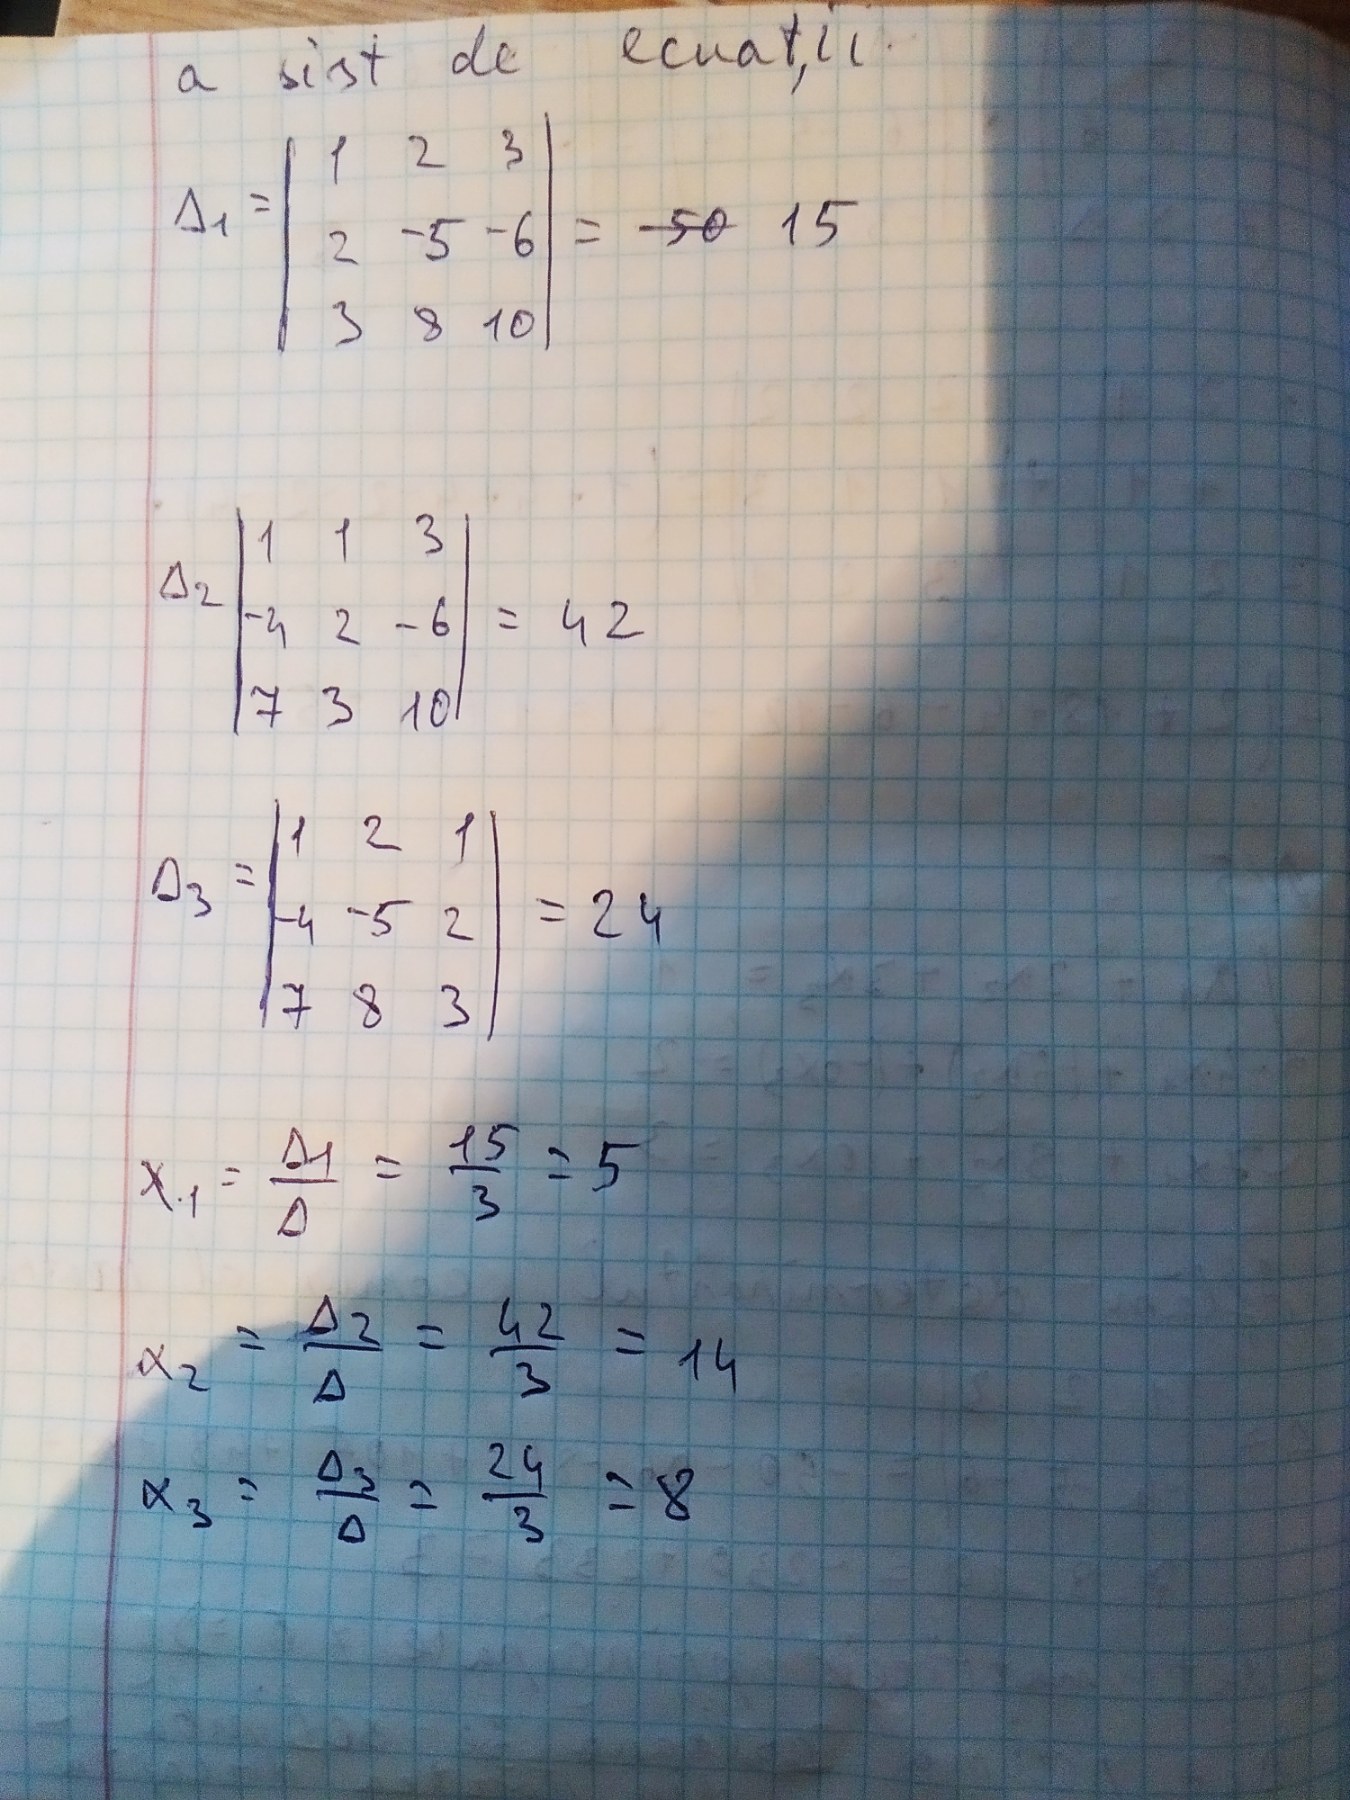 a sist de ecuații.
Δ1 = | 1 2 3 |
| 2 -5 -6 | = -50 15
| 3 8 10 |
Δ2 | 1 1 3 |
| -4 2 -6 | = 42
| 7 3 10 |
Δ3 = | 1 2 1 |
| -4 -5 2 | = 24
| 7 8 3 |
x1 = Δ1/Δ = 15/3 = 5
x2 = Δ2/Δ = 42/3 = 14
x3 = Δ3/Δ = 24/3 = 8